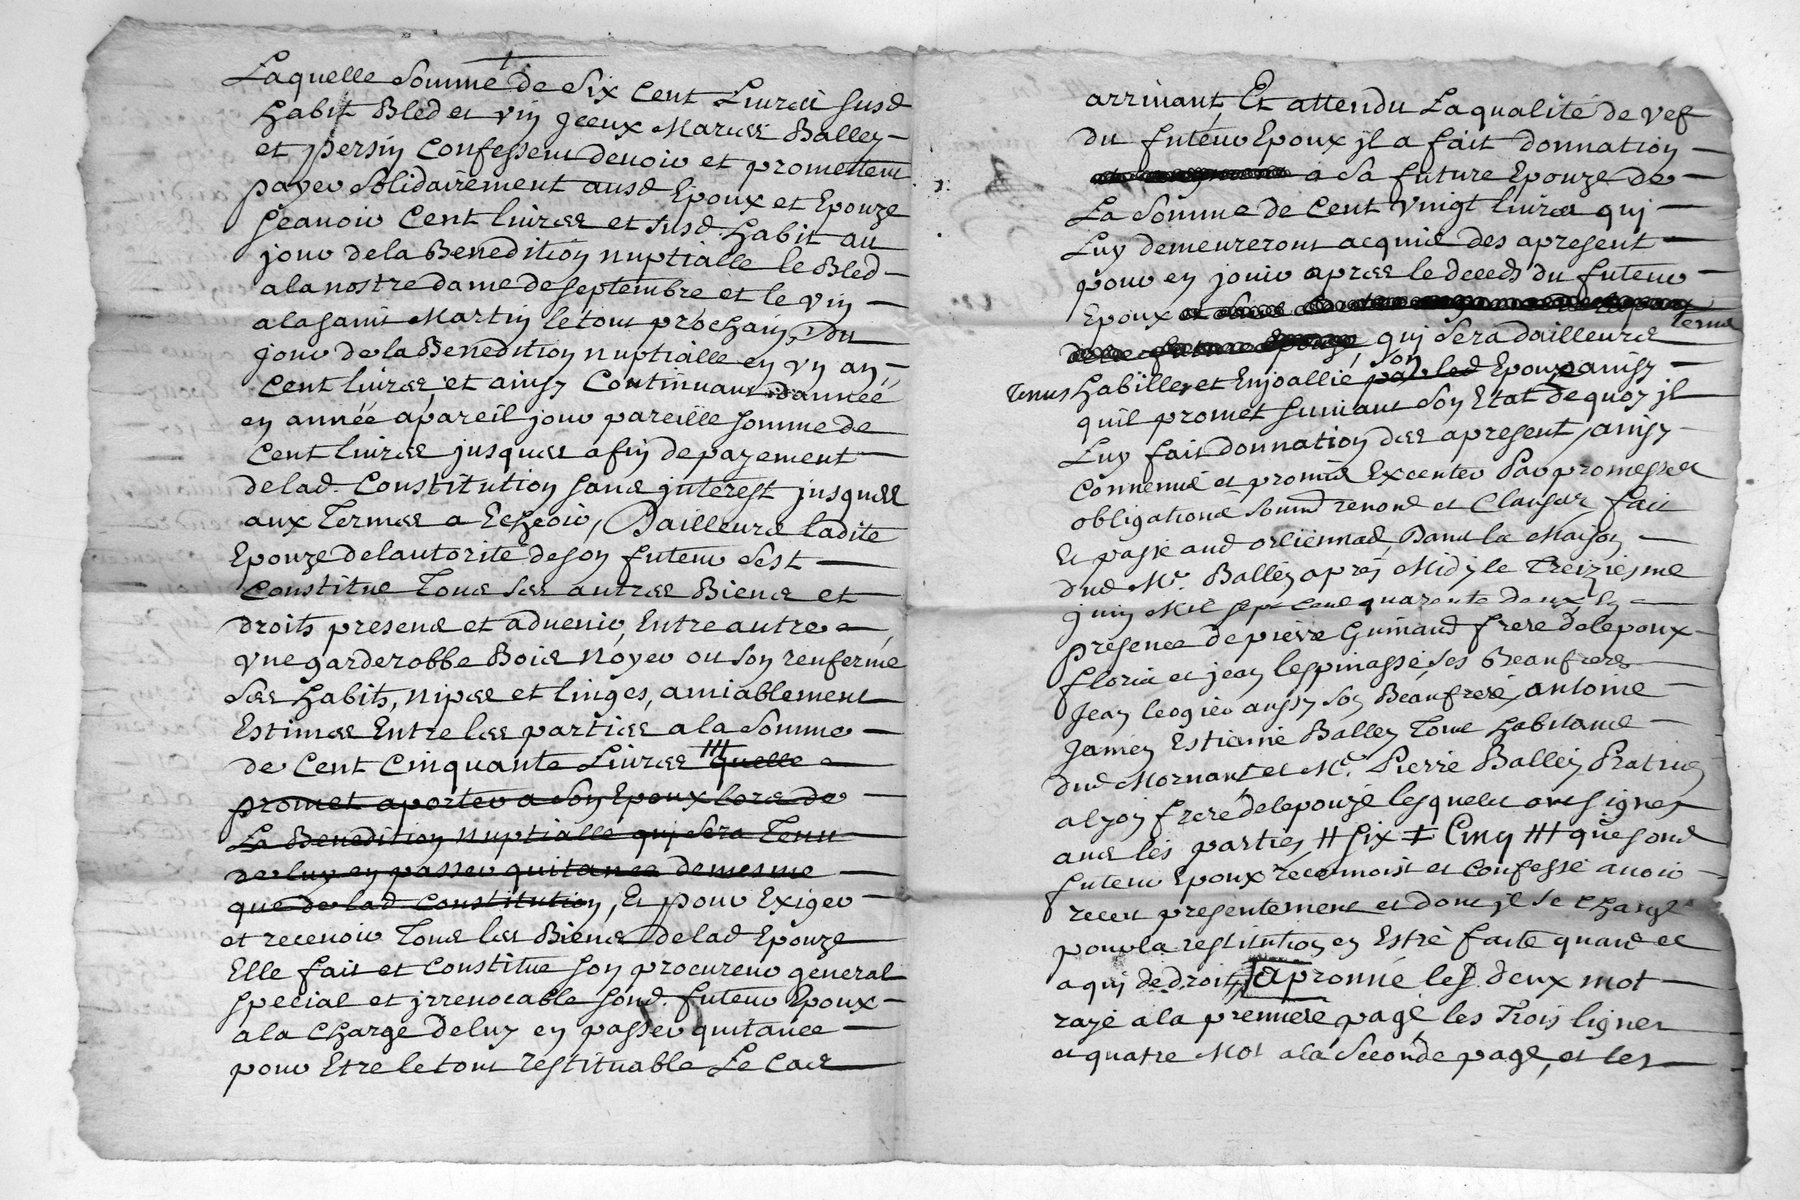 Laquelle somme de six cent Livres susd
habit Bled et vin jceux Maries Balley
et persin Confessent devoir et promettent
payer solidairement ausd Epoux et Epouze
sçavoir Cent livres et susd. habit au
jour de la Benedition nuptialle le Bled
a la nostre dame de septembre et le vin
a la saint Martin le tout prochain, Du
jour de la Benedition nuptialle en vn an,
Cent livres, et ainsy Continuant dannéé
en annéé apareil jour pareille somme de
Cent livres jusques afin depayement
delad. Constitution sans jnterest jusques
aux Termes a Echeoir, Dailleurs ladite
Epouze delautorité deson futeur sest
Constitue Tous ses autres Biens et
droits presens et advenir, Entre autre
vne garderobbe Bois noyer ou son renfermé
ses habits, nipes et linges, amiablement
Estimes Entre les parties a la somme
de Cent Cinquante Livres quelle
promet aporter a son Epoux lors de
La Benedition nuptialle qui sera Tenu
de luy en passer quitance demesme
que de lad Constitution, Et pour Exiger
et recevoir Tous les Biens delad Epouze
Elle fait et Constitue son procureur general
special et jrrevocable sond. futeur Epoux
a la Charge deluy en passer quitance
pour Etre le tout restituable Le Cas
arrivant, Et attendu La qualité de vef
du futeur Epoux jl a fait donnation
a sa future Epouze de
La somme de Cent vingt livres qui
Luy demeureront acquis des apresent
pour en jouir apres le deceds du futeur
Epoux
qui sera dailleurs
Tenus habiller et Enjoallié par son led Epoux ainsy
quil promet suivant son Etat De quoy jl
Luy fait donnation des apresent, ainsy
Convenu et promis Excecuter Par promesses
obligations soumd renond et Clauses fait
Et passé aud orliennas, Dans la Maison
dud Mr. Balley apres Midy le Treiziesme
juin Mil sept cent quarente deux En
presence de pierre Guinand frere delepoux
et jean lespinasse, ses Beaufreres
Jean leogier aussy son Beaufrere, antoine
Estienne Balley Tous habitants
dud Mornant, et Me. Pierre Balley Praticien
a lyon frere delepouze lesquels ont signes
avec les parties, H six ‡ Cinq HI que sond
futeur Epoux reconnoist et Confesse avoir
receu presentement et dont jl se Charge
pour la restitution en Estre faite quand et
a qui de droit, aprouvé les deux mot
rayé a la premiere page, les Trois lignes
et quatre Mot a la seconde page, et les